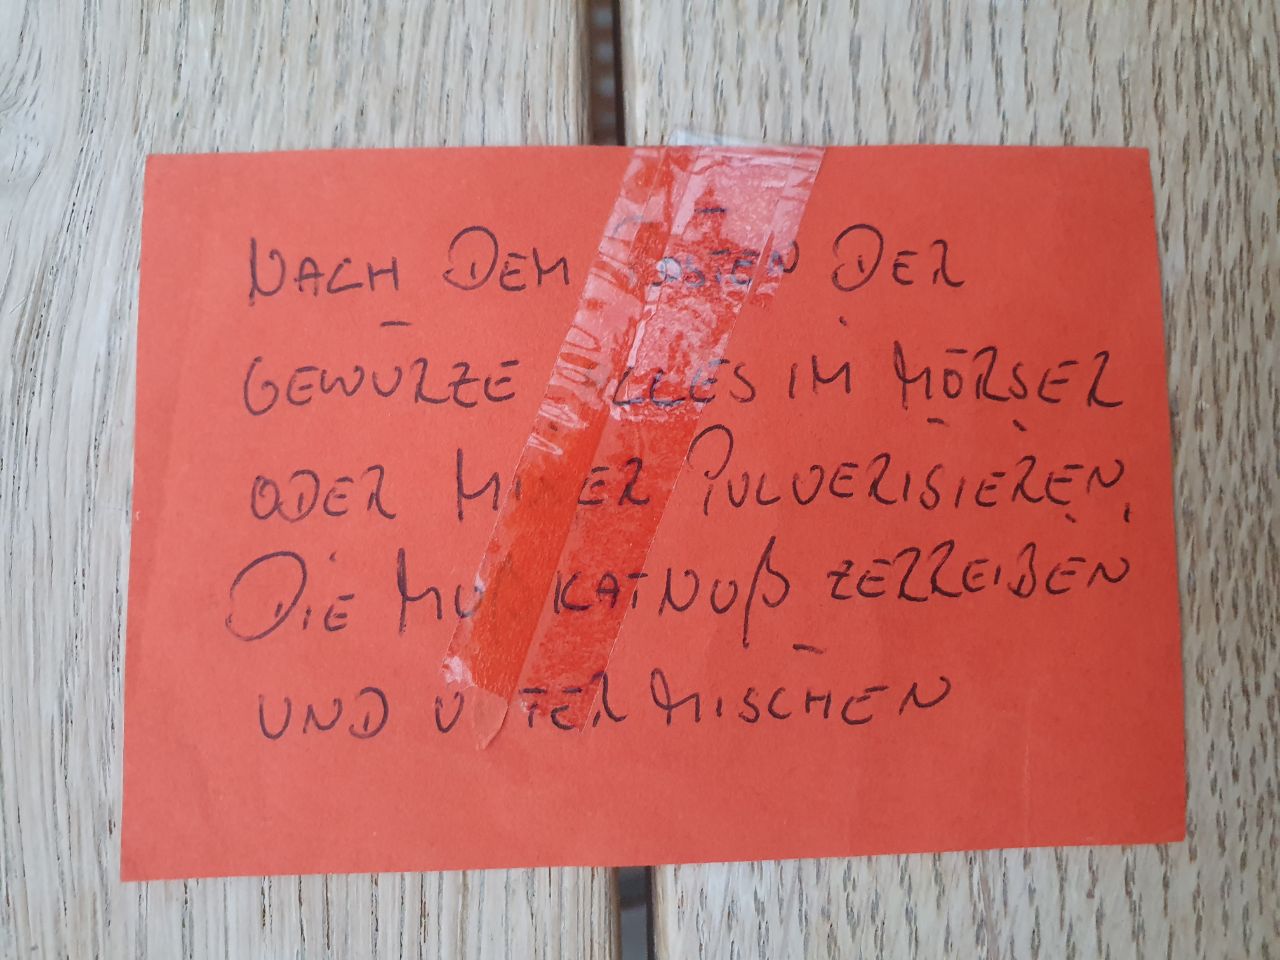 NACH DEM RÖSTEN DER
GEWÜRZE ALLES IM MÖRSER
ODER MIXER PULVERISIEREN,
DIE MUSKATNUß ZERREIBEN
UND UNTER MISCHEN